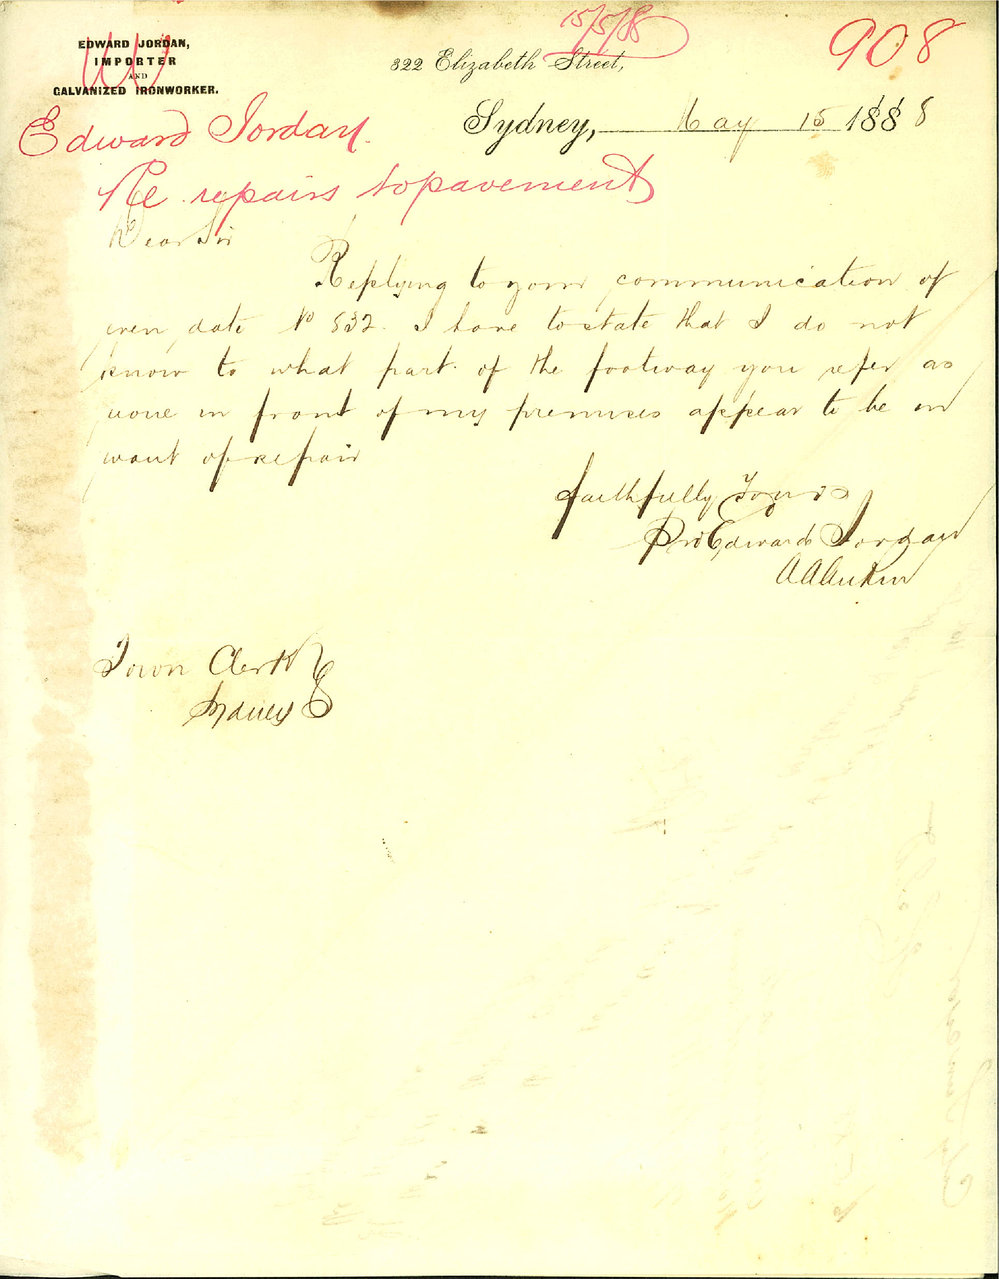 15/5/88
908
EDWARD JORDAN,
IMPORTER
AND
GALVANIZED IRONWORKER.
322 Elizabeth Street,
Sydney, May 15 1888
Edward Jordan.
Re repairs to pavement
Dear Sir
Replying to your communication of
even date No 532. I have to state that I do not
know to what part of the footway you refer as
none in front of my premises appear to be in
want of repair
Faithfully Yours
Pro Edward Jordan
Town Clerk
Sydney